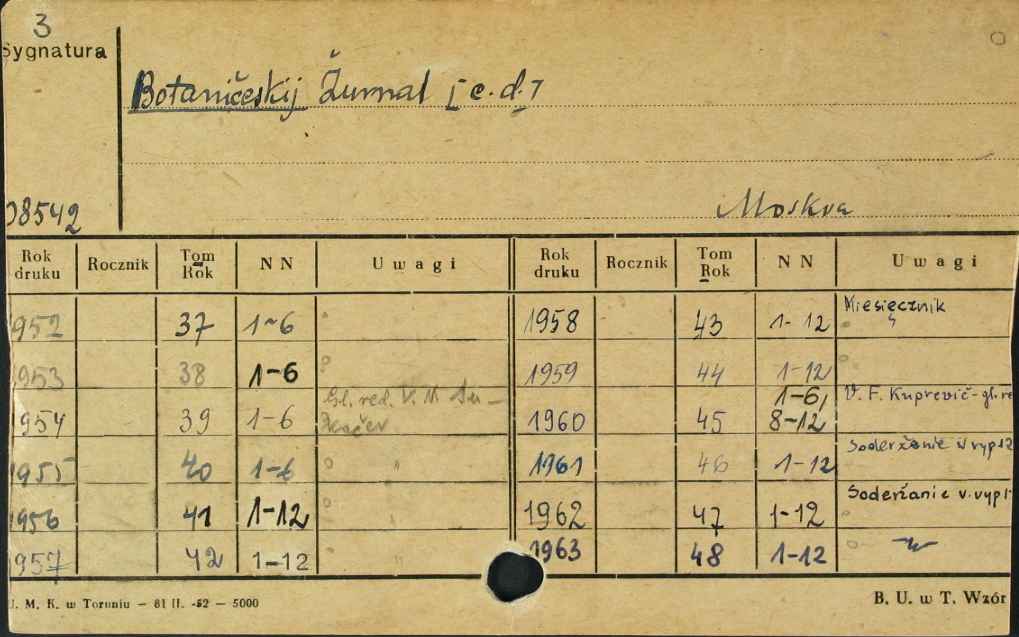 3
Sygnatura
Botaničeskij Žurnal [c.d.]
08542
Moskva
Rok druku Rocznik Tom Rok NN Uwagi Rok druku Rocznik Tom Rok NN Uwagi
1952 37 1-6 1958 43 1-12 Miesięcznik
1953 38 1-6 1959 44 1-12
1954 39 1-6 Gl. red. V. N Su-kačev 1960 45 1-6, 8-12 V. F. Kuprevič-gl. re
1955 40 1-6 " 1961 46 1-12 Soderžanie v vyp 12
1956 41 1-12 " 1962 47 1-12 Soderžanie v. vyp 1
1957 42 1-12 " 1963 48 1-12
U. M. K. w Toruniu — 61 II. -52 — 5000 B. U. w T. Wzór